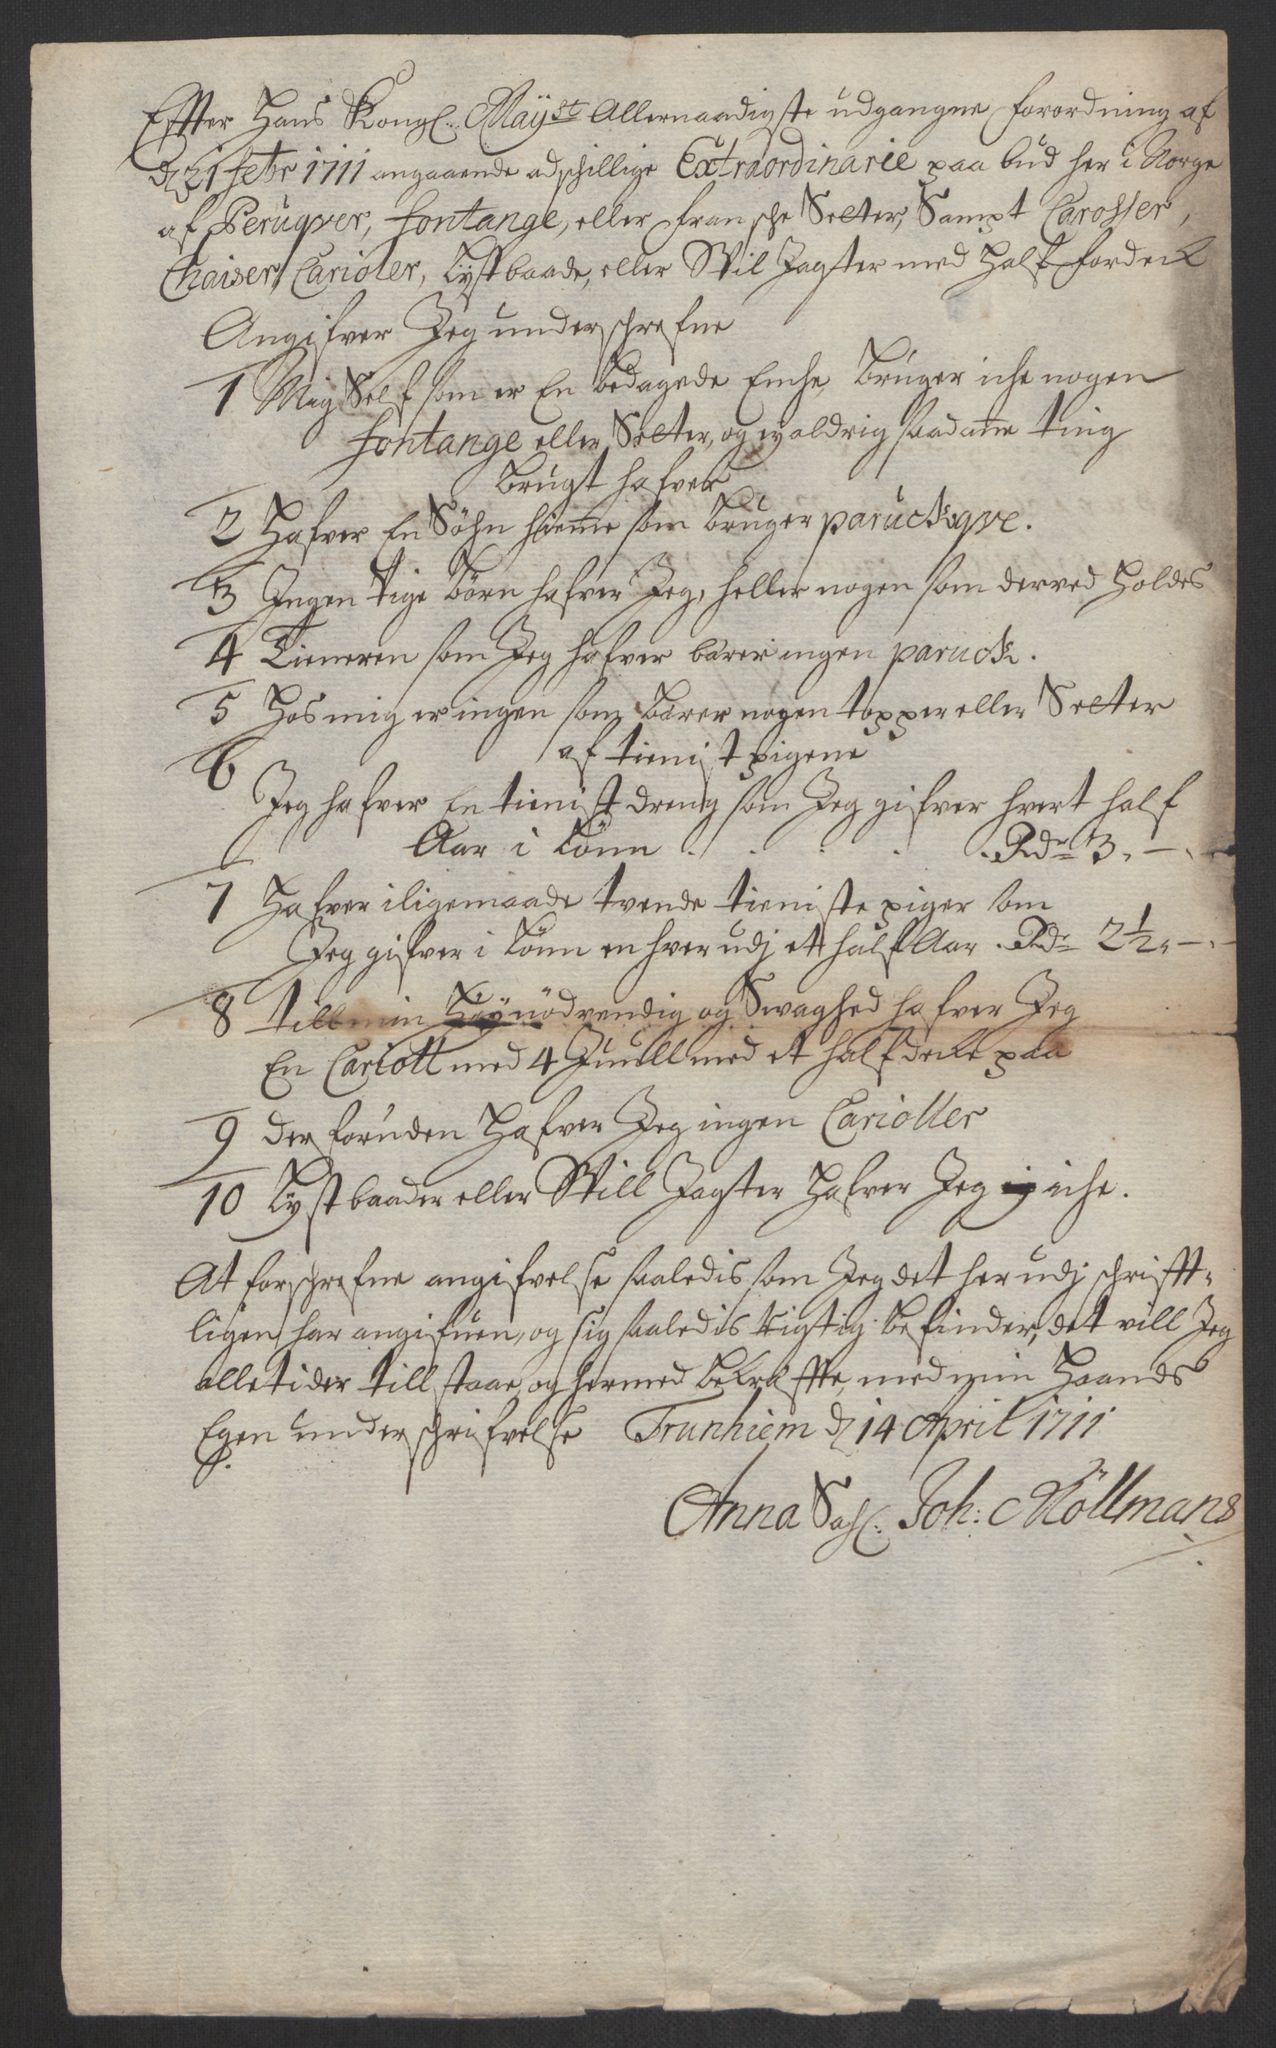 Effter Hans Kongl. Mayst Allernaadigste udgangne forordning af
d 21 febr 1711 angaaende adschillige Extraordinarie paabud her i Norge
af Perüqver, fontange, eller fransche Setter, Sampt Carosser,
Chaiser, Carioler, Lystbaade, eller Spil Jagter med Half fordeck
Angifver Jeg underschrefne
1 Mig Self som er En bedagede Enche, Brüger iche nogen
fontange eller Setter, og ey aldrig saadanne ting
Brügt hafver
2 Hafver En Söhn hiemme som brüger paruckqve.
3 Ingen tige Börn hafver Jeg, heller nogen som derved Holdes
4 Tieneren som Jeg hafver bærer ingen paruck.
5 Hos mig er ingen som Bærer nogen topper eller Setter
af tienist pigene
6 Jeg hafver En tienist dreng som Jeg gifver hvert half
Aar i Lönn . . . . . Rdr 3. — . —
7 Hafver iligemaade tvende tieniste piger som
Jeg gifver i Lönn en hver udj et half Aar . Rdr 2½. — . —
8 till min Höynödvendig og Swaghed hafver Jeg
En Cariott med 4 Juull med et half decke paa
9 der foruden Hafver Jeg ingen Carioller
10 Lystbaader eller Spill Jagter Hafver Jeg iche.
At forschrefne angifvelse saaledis som Jeg det her udj schrifft-
ligen har angifuen, og sig saaledis rigtig befinder, det vill Jeg
alletider till staae, og hermed bekræffte, med min Haands
Egen underschrifvelse Trunhiem d 14 April 1711
Anna Sahl. Joh: Möllmans